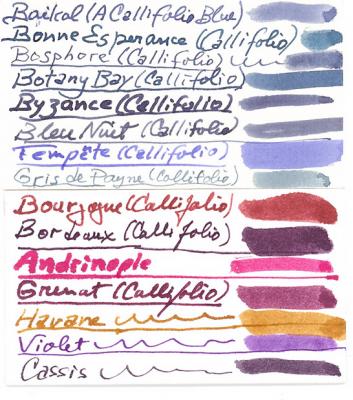 Baikal (A Callifolio Blue)
Bonne Esperance (Callifolio)
Bosphore (Callifolio)
Botany Bay (Callifolio)
Byzance (Callifolio)
Bleu Nuit (Callifolio)
Tempête (Callifolio)
Gris de Payne (Callifolio)
Bourgogne (Callifolio)
Bordeaux (Callifolio)
Andrinople
Grenat (Callifolio)
Havane
Violet
Cassis